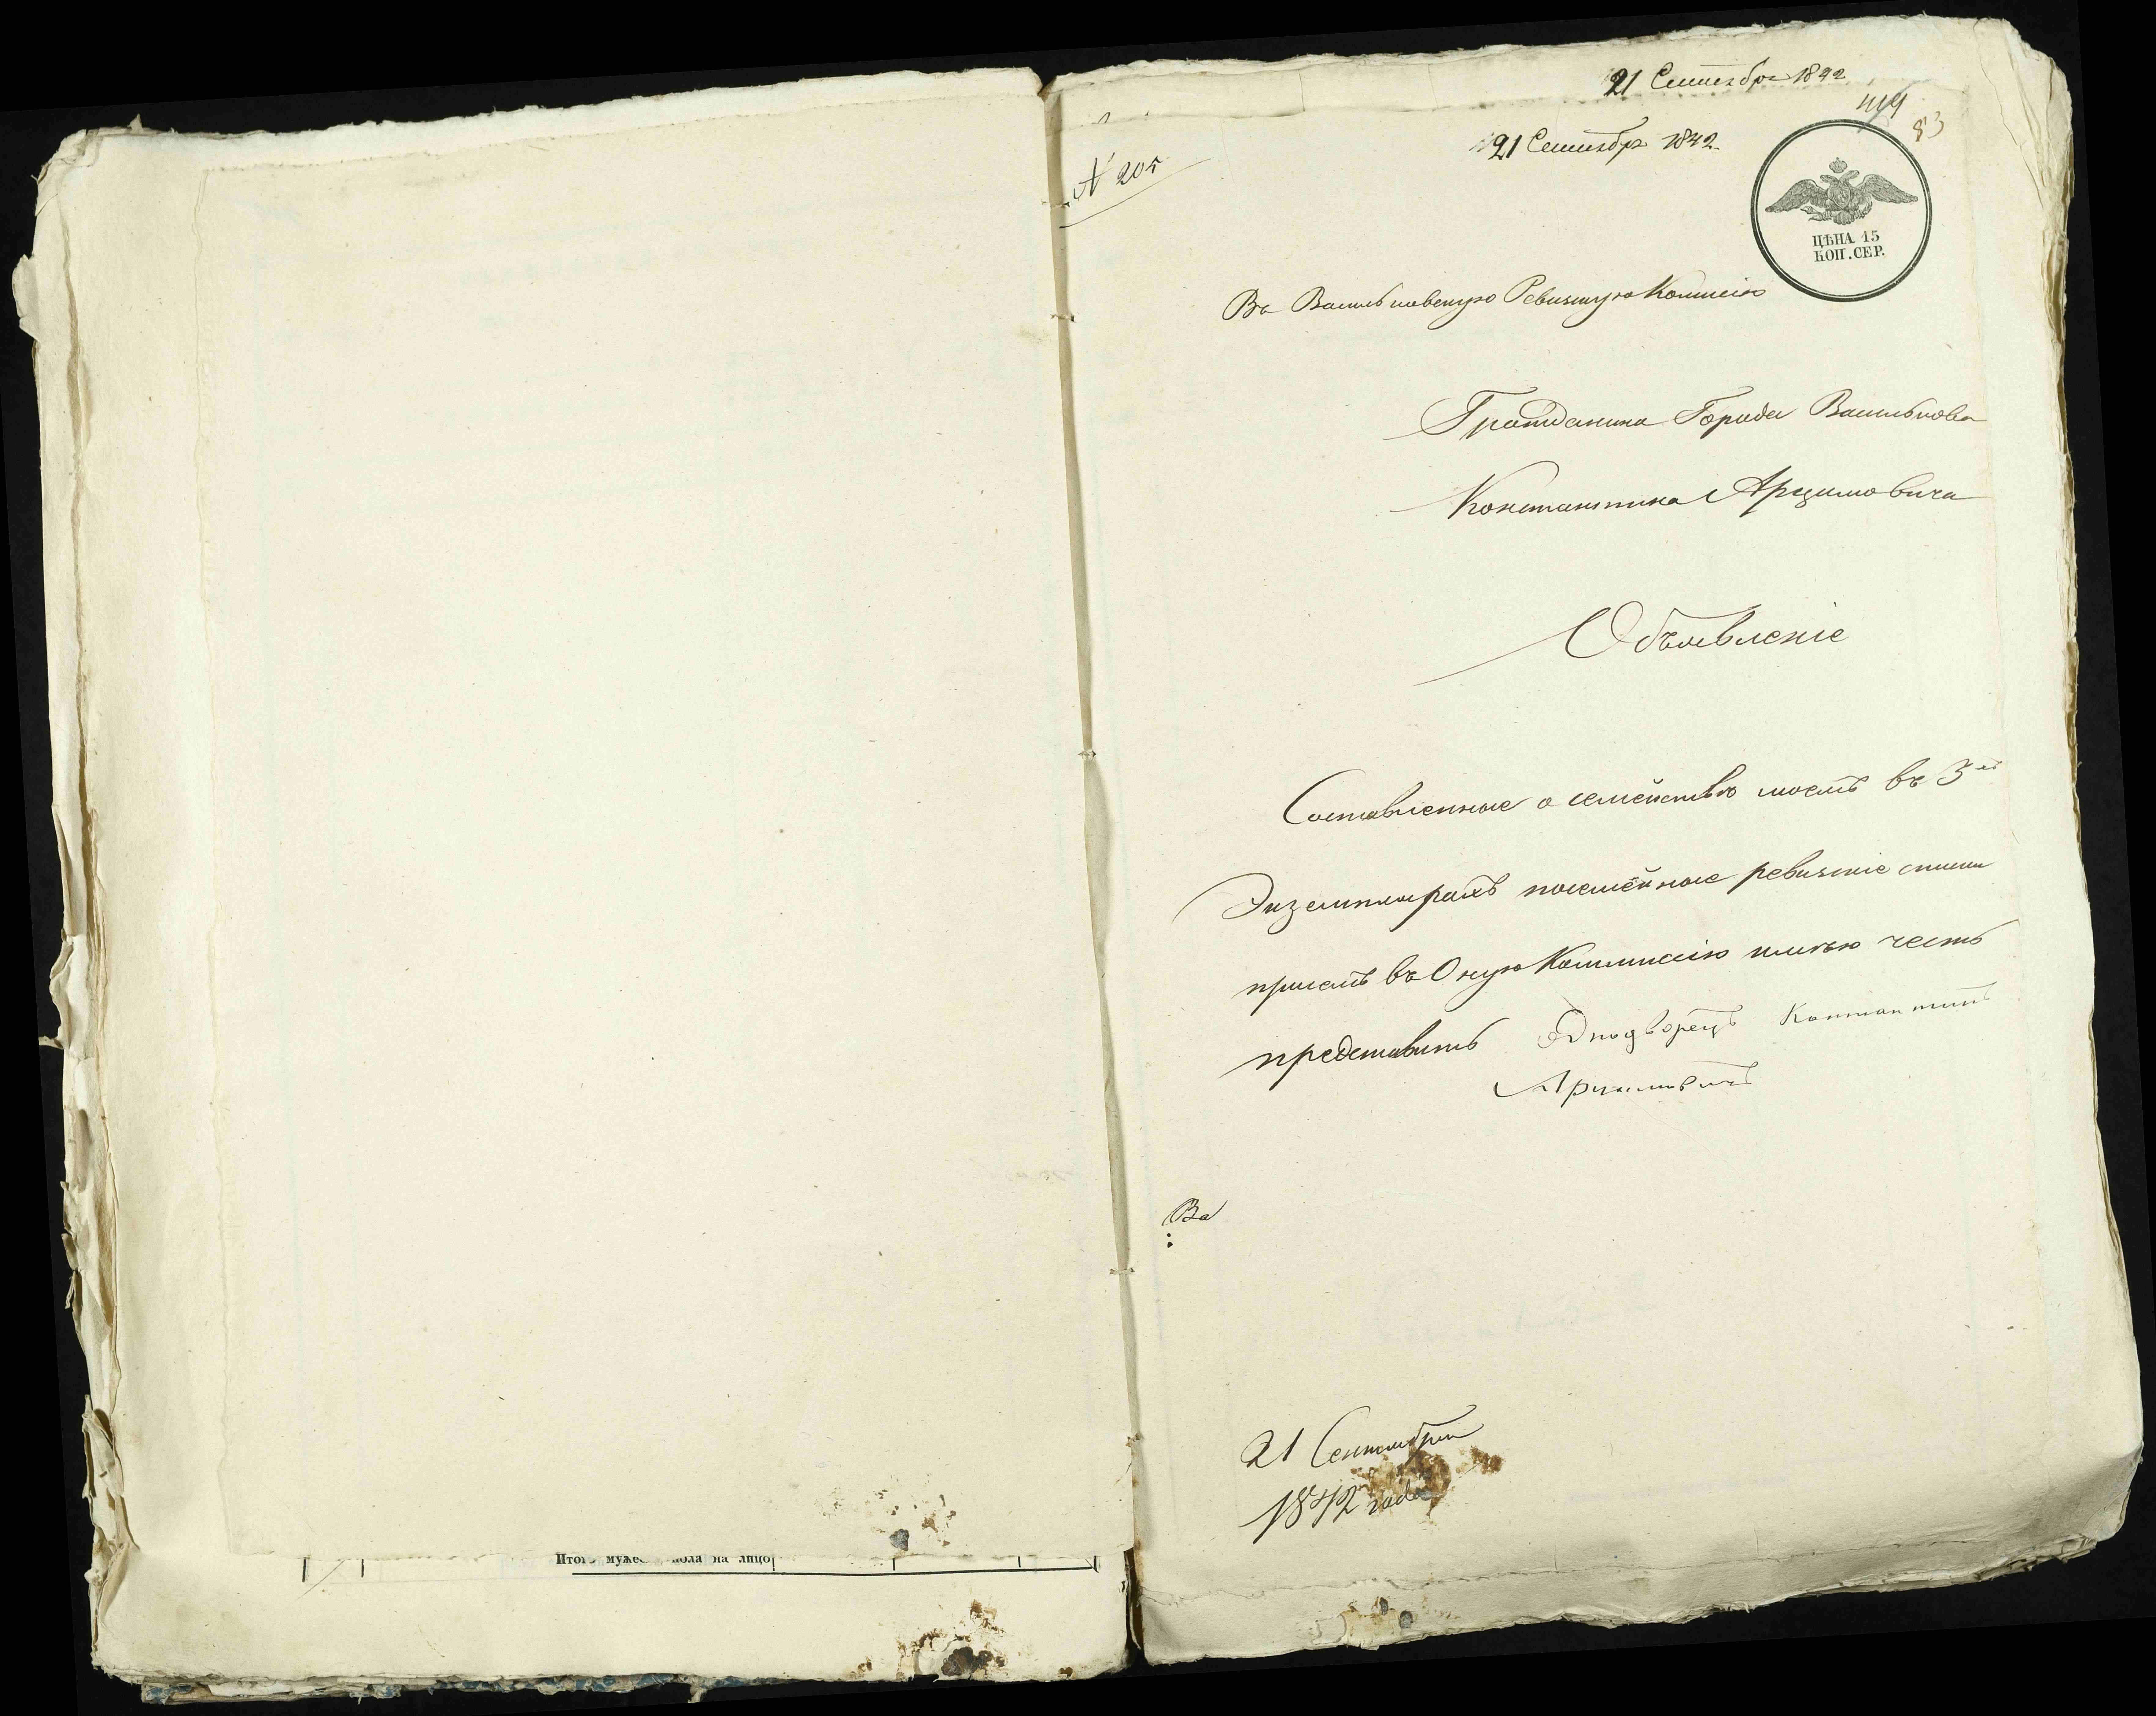 Итогъ мужес пола на лицо
21 Сентября 1842
419
83
21 Сентября 1842
№ 205
ЦѢНА 15
КОП. СЕР.
Въ Васильковскую Ревизскую Комисію
Гражданина Города Василькова
Константина Арцимовича
Объявленіе
Составленные о семействѣ моемъ въ 3хъ
Экземплярахъ посемейные ревизскіе списки
при семъ въ Оную Коммиссію имѣю честь
представить Однодворецъ Константинъ
Арцимовичъ
21 Сентября
1842 года